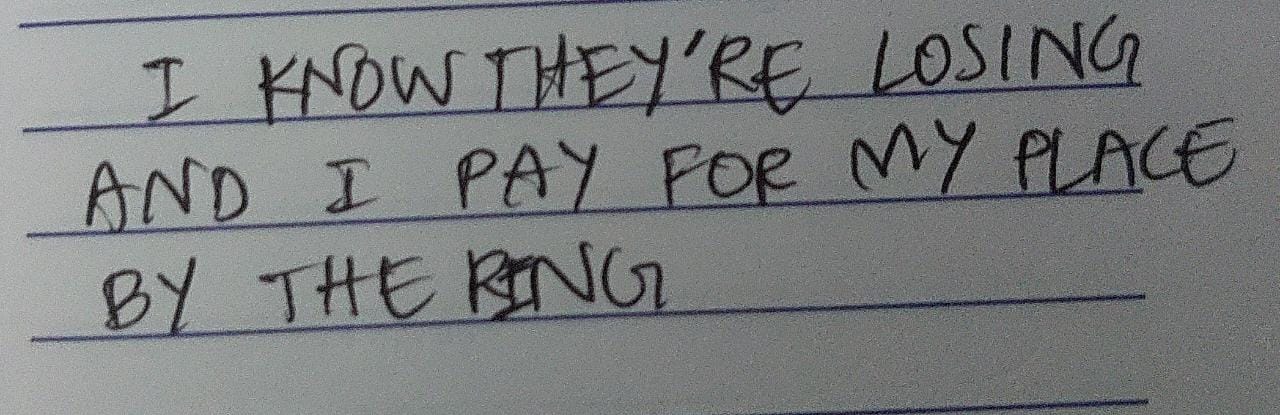 I KNOW THEY'RE LOSING
AND I PAY FOR MY PLACE
BY THE RING